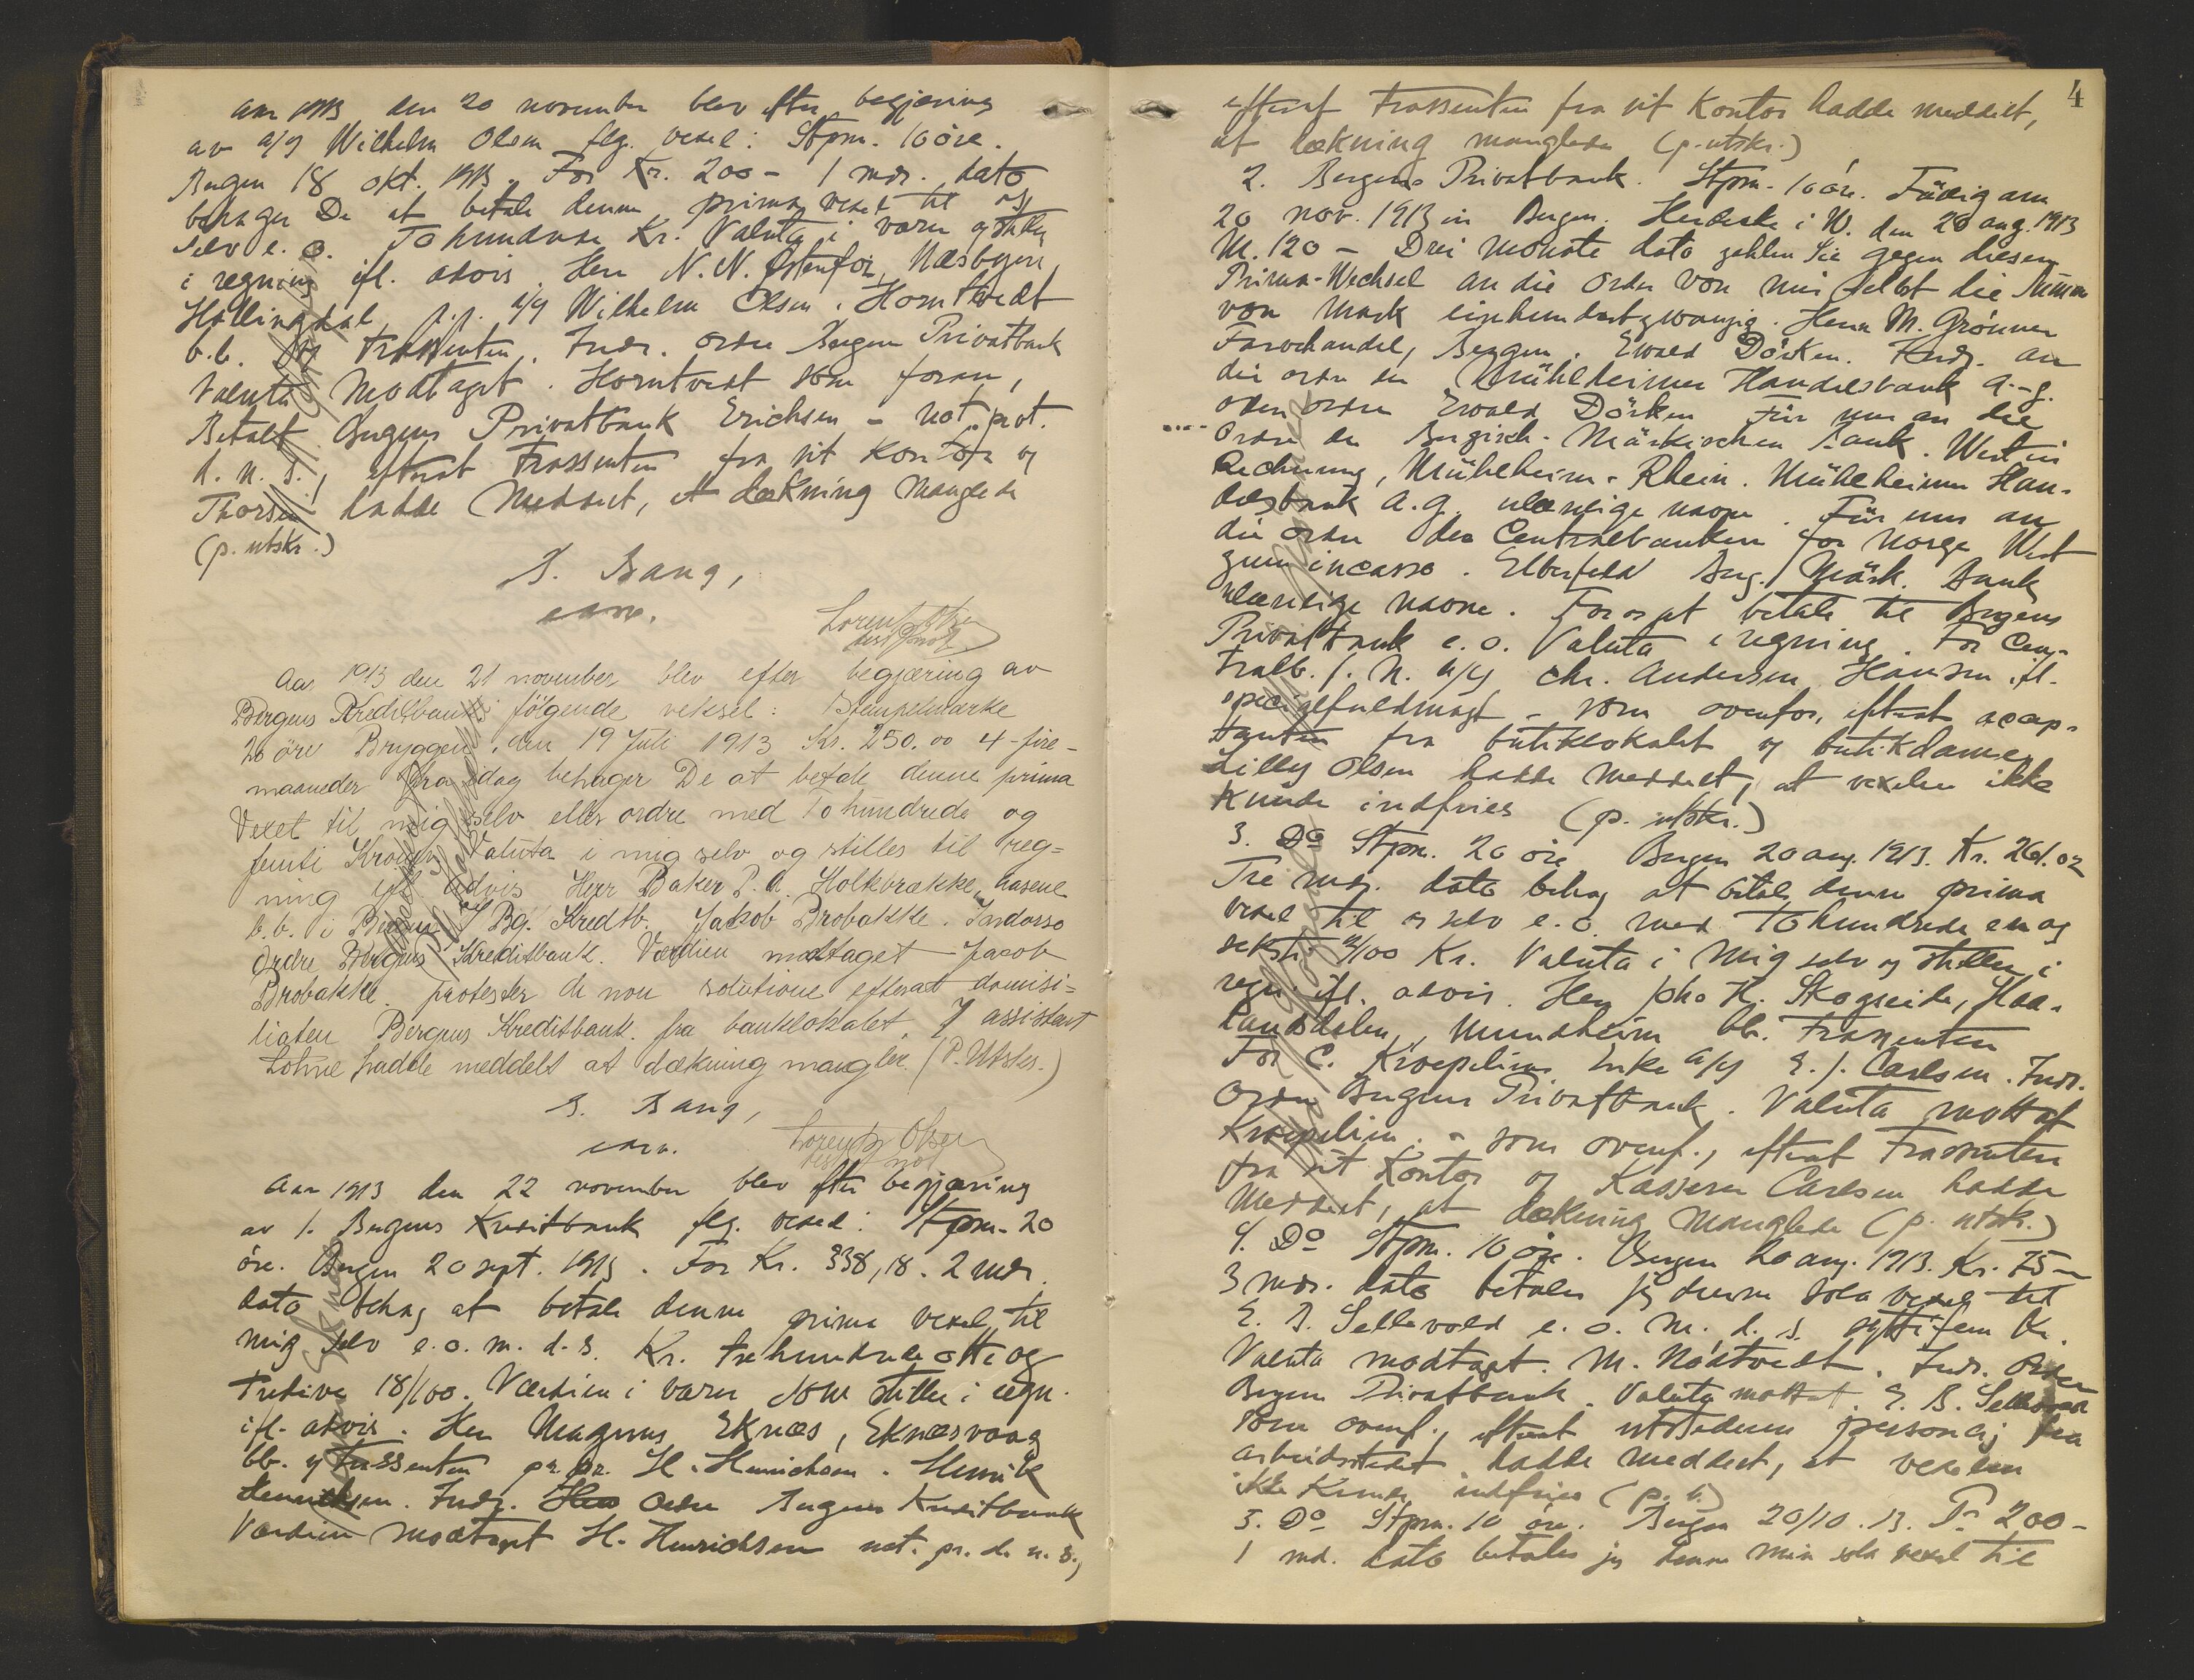 Aar 1913 den 20 november blev efter begjæring
av a/s Wilhelm Olsen flg. vexel: Stpm. 10 öre.
Bergen 18 okt. 1913. For Kr. 200 - 1 mdr. dato
behager De at betale denne prima vexel til os
selv e. o. Tohundrede Kr. Valuta i varer og stilles
i regning ifl. advis Herr N. N. Østenfor, Næsbyen,
Hallingdal p.p. a/s Wilhelm Olsen. Horntvedt
b.b. Trassenten. Indr. ordre Bergens Privatbank
Valuta Modtaget. Horntvedt som foran,
Betalt Bergens Privatbank Erichsen - not. prot.
d. n. s., efterat Trassenten fra sit kontor og
Thorsen hadde Meddelt, at dækning manglede
(p. utskr.)
B. Bang,
Lorentz Olsen
Aar 1913 den 21 november blev efter begjæring av
Bergens Kreditbank følgende veksel: Stempelmærke
20 öre Bryggen, den 19 Juli 1913 Kr. 250.00 4-fire-
maaneder fra idag behager De at betale denne prima
Vexel til mig selv eller ordre med Tohundrede og
femti Kroner Valuta i mig selv og stilles til reg=
ning ifl. advis Herr Baker P. A. Holkbrække, Aasene
b.b. i Bergens Bg. Kredtb. Jakob Brobakke. Indosso
Ordre Bergens Kreditbank. Værdien modtaget Jacob
Brobakke. protester de non solutione efterat domisi=
liaten Bergens Kreditbank fra banklokalet, assistent
Lohne hadde meddelt at dækning mangler. (P. Utskr.)
B. Bang,
Lorentz Olsen
Aar 1913 den 22 november blev efter begjæring
av 1. Bergens Kreditbank flg. vexel: Stpm. 20
öre. Bergen 20 sept. 1913. For Kr. 338,18. 2 mdr.
dato behag at betale denne prima vexel til
mig selv e.o. m. d. s. Kr. trehundrede otte og
tredive 18/100. Værdien i varer som stilles i regn.
ifl. advis. Herr Magnus Eknæs, Eknæsvaag
bb. og Trassenten pr. pr. H. Henrichsen. Henrik
Henrichsen. Indr. Ordre Bergens Kreditbank
Værdien modtaget H. Henrichsen not. pr. d. n. s.,
4
efterat Trassenten fra sit Kontor hadde meddelt,
at dækning manglede (p. utskr.)
2. Bergens Privatbank. Stpm. 10 öre. Fällig am
20 nov. 1913 in Bergen. Herdecke i W. den 20 aug. 1913
M. 120 - Drei Monate dato zahlen Sie gegen diesen
Prima-Wechsel an die Order von mir selbst die Summe
von Mark einhundertzwanzig. Herrn M. Grönner
Farvehandel, Bergen. Ewald Dörken. Indr. an
die order der Mühlheimer Handelsbank A.-g.
oder ordre Ewald Dörken Für uns an die
ordre der Bergisch-Märkischen Bank. Wert in
Rechnung, Mühlheim-Rhein. Mühlheimer Han-
delsbank A.g. ulæselige navne. Für uns an
die order der Centralbanken for Norge Wert
zum incasso. Elberfeld Berg. Märk. Bank
ulæselige navne. For os at betale til Bergens
Privatbank e. o. Valuta i regning. For Cen-
tralb. f. N. a/s Chr. Andersen Hansen ifl.
specialfuldmagt - som ovenfor, efterat accep-
tanten fra butiklokalet og butikdame
Lilly Olsen hadde Meddelt, at vexelen ikke
kunde indfries (p. utskr.)
3. Do Stpm. 20 öre Bergen 20 aug. 1913. Kr. 261.02
Tre mdr. dato behag at betale denne prima
vexel til os selv e. o. med Tohundrede en og
seksti 02/100 Kr. Valuta i Mig selv og stilles i
regn. ifl. advis. Herr Johs K. Skogseide, Haa-
landsdalen, Mundheim bb. Trassenten
For C. Kroepelins Enke a/s E. J. Carlsen. Indr.
Ordre Bergens Privatbank. Valuta mottat
Kroepelin. - som ovenf., efterat Trassenten
fra sit Kontor og Kasserer Carlsen hadde
Meddelt, at dækning Manglede (p. utskr.)
4. Do Stpm. 10 öre. Bergen 20 aug. 1913. Kr. 75 -
3 mdr. dato betaler jeg denne sola vexel til
E. B. Sellevold e. o. M. d. s. sytti fem Kr.
Valuta modtaget. M. Nödtvedt. Indr. Ordre
Bergens Privatbank. Valuta mottat. E. B. Sellevold
som ovenf., efterat utstederen personlig fra
arbeidsstedet hadde meddelt, at vexelen
ikke kunde indfries (p. u.)
5. Do Stpm. 10 öre. Bergen 20/10.13. Pr 200 -
1 md. dato betaler jeg denne min sola vexel til